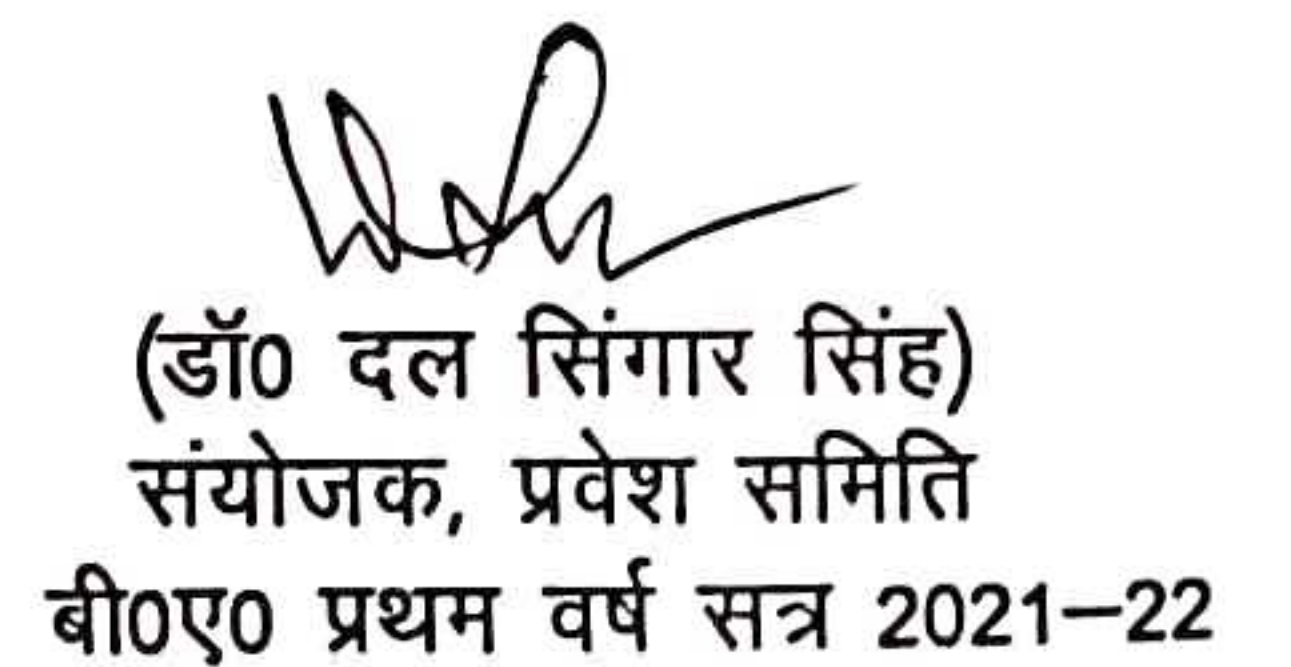 (डॉ0 दल सिंगार सिंह)
संयोजक, प्रवेश समिति
बी0ए0 प्रथम वर्ष सत्र 2021–22